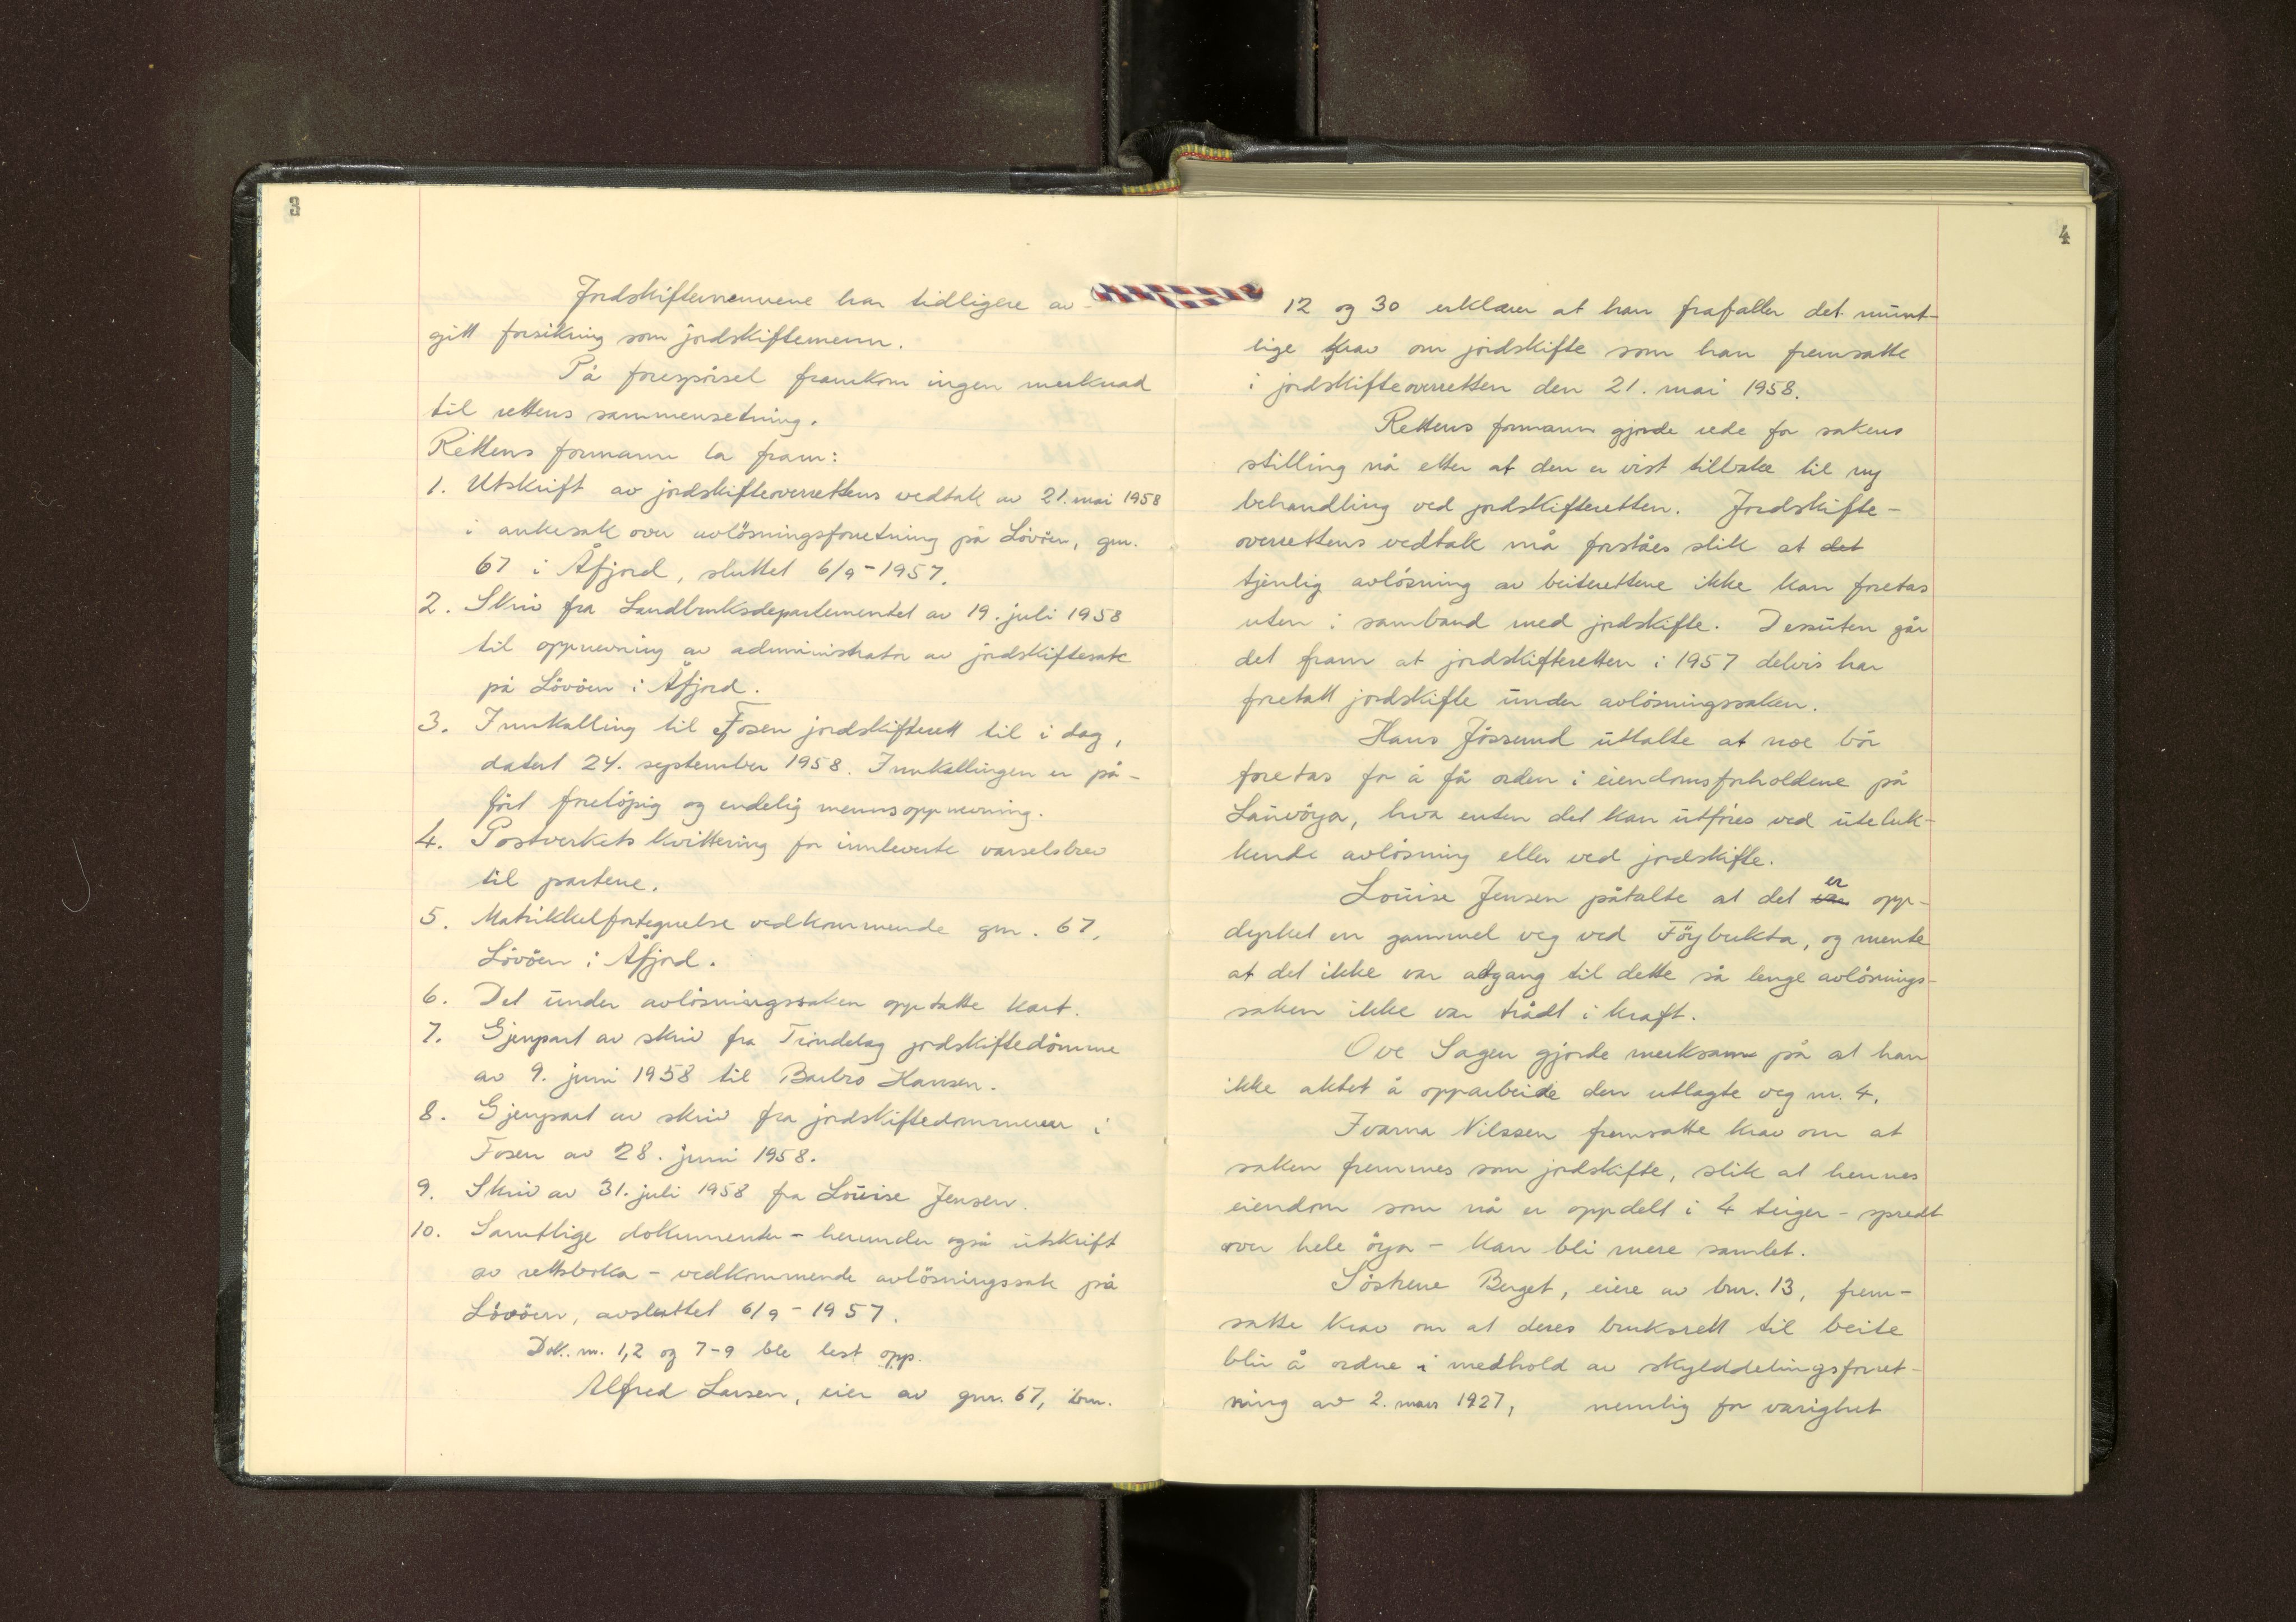 3
Jordskiftemennene har tidligere av-
gitt forsikring som jordskiftemenn.
På forespørsel framkom ingen merknad
til rettens sammensetning.
Rettens formann la fram:
1. Utskrift av jordskifteoverrettens vedtak av 21. mai 1958
i ankesak over avlösningsforretning på Lövöen, gnr.
67 i Åfjord, sluttet 6/9-1957.
2. Skriv fra Landbruksdepartementet av 19. juli 1958
til oppnevning av administrator av jordskiftesak
på Lövöen i Åfjord.
3. Innkalling til Fosen jordskifterett til i dag,
datert 24. september 1958. Innkallingen er på-
fört forelöpig og endelig mennsoppnevning.
4. Postverkets kvittering for innleverte varselsbrev
til partene.
5. Matrikkelfortegnelse vedkommende gnr. 67,
Lövöen i Åfjord.
6. Det under avlösningssaken opptatte kart.
7. Gjenpart av skriv fra Tröndelag jordskiftedömme
av 9. juni 1958 til Barbro Hansen.
8. Gjenpart av skriv fra jordskiftedommeren i
Fosen av 28. juni 1958.
9. Skriv av 31. juli 1958 fra Louise Jensen.
10. Samtlige dokumenter - herunder også utskrift
av rettsboka - vedkommende avlösningssak på
Lövöen, avsluttet 6/9-1957.
Dok. nr. 1,2 og 7-9 ble lest opp.
Alfred Larsen, eier av gnr. 67, bnr.
4
12 og 30 erklærer at han frafaller det munt-
lige krav om jordskifte som han fremsatte
i jordskifteoverretten den 21. mai 1958.
Rettens formann gjorde rede for sakens
stilling nå etter at den er vist tilbake til ny
behandling ved jordskifteretten. Jordskifte-
overrettens vedtak må forståes slik at det
tjenlig avlösning av beiterettene ikke kan foretas
uten i samband med jordskifte. Dessuten går
det fram at jordskifteretten i 1957 delvis har
foretatt jordskifte under avlösningssaken.
Hans Jössund uttalte at noe bör
foretas for å få orden i eiendomsforholdene på
Lauvöya, hva enten det kan utföres ved uteluk-
kende avlösning eller ved jordskifte.
Louise Jensen påtalte at det er opp-
dyrket en gammel veg ved Föybukta, og mente
at det ikke var adgang til dette så lenge avlösnings-
saken ikke var trådt i kraft.
Ove Sagen gjorde merksam på at han
ikke aktet å opparbeide den utlagte veg nr. 4.
Ivarna Nilssen fremsatte krav om at
saken fremmes som jordskifte, slik at hennes
eiendom som nå er oppdelt i 4 teiger - spredt
over hele öya - kan bli mere samlet.
Söskene Berget, eiere av bnr. 13, frem-
satte krav om at deres bruksrett til beite
blir å ordne i medhold av skylddelingsforret-
ning av 2. mars 1927, nemlig for varighet